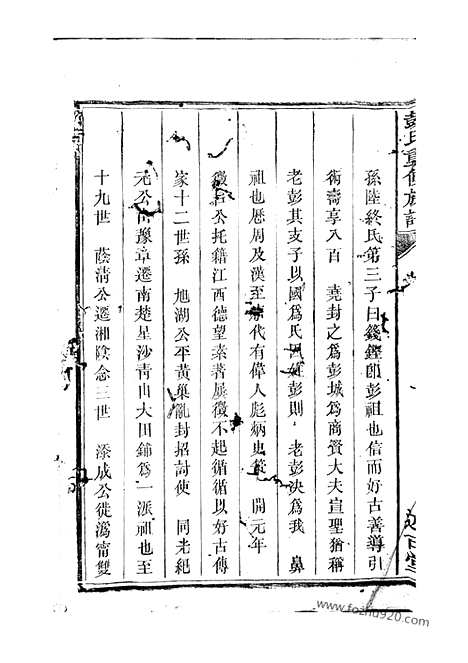 彭氏重修族譜
孫陸終氏第三子曰籛鏗卽彭祖也信而好古善導引
術壽享八百 堯封之爲彭城爲商賢大夫宣聖猶稱
老彭其支子以國爲氏因姓彭則 老彭決爲我 鼻
祖也歷周及漢至代有偉人彪炳史 開元年
公托籍江西德望素著屢徵不起循循以好古傳
家十二世孫 旭湖公平黃巢亂封招討使 同光紀
元公由豫章遷南楚星沙靑山大田鋪爲一派祖也至
十九世 蔭淸公遷湘陰念三世 添成公徙潙甯雙
www.fozhu920.com